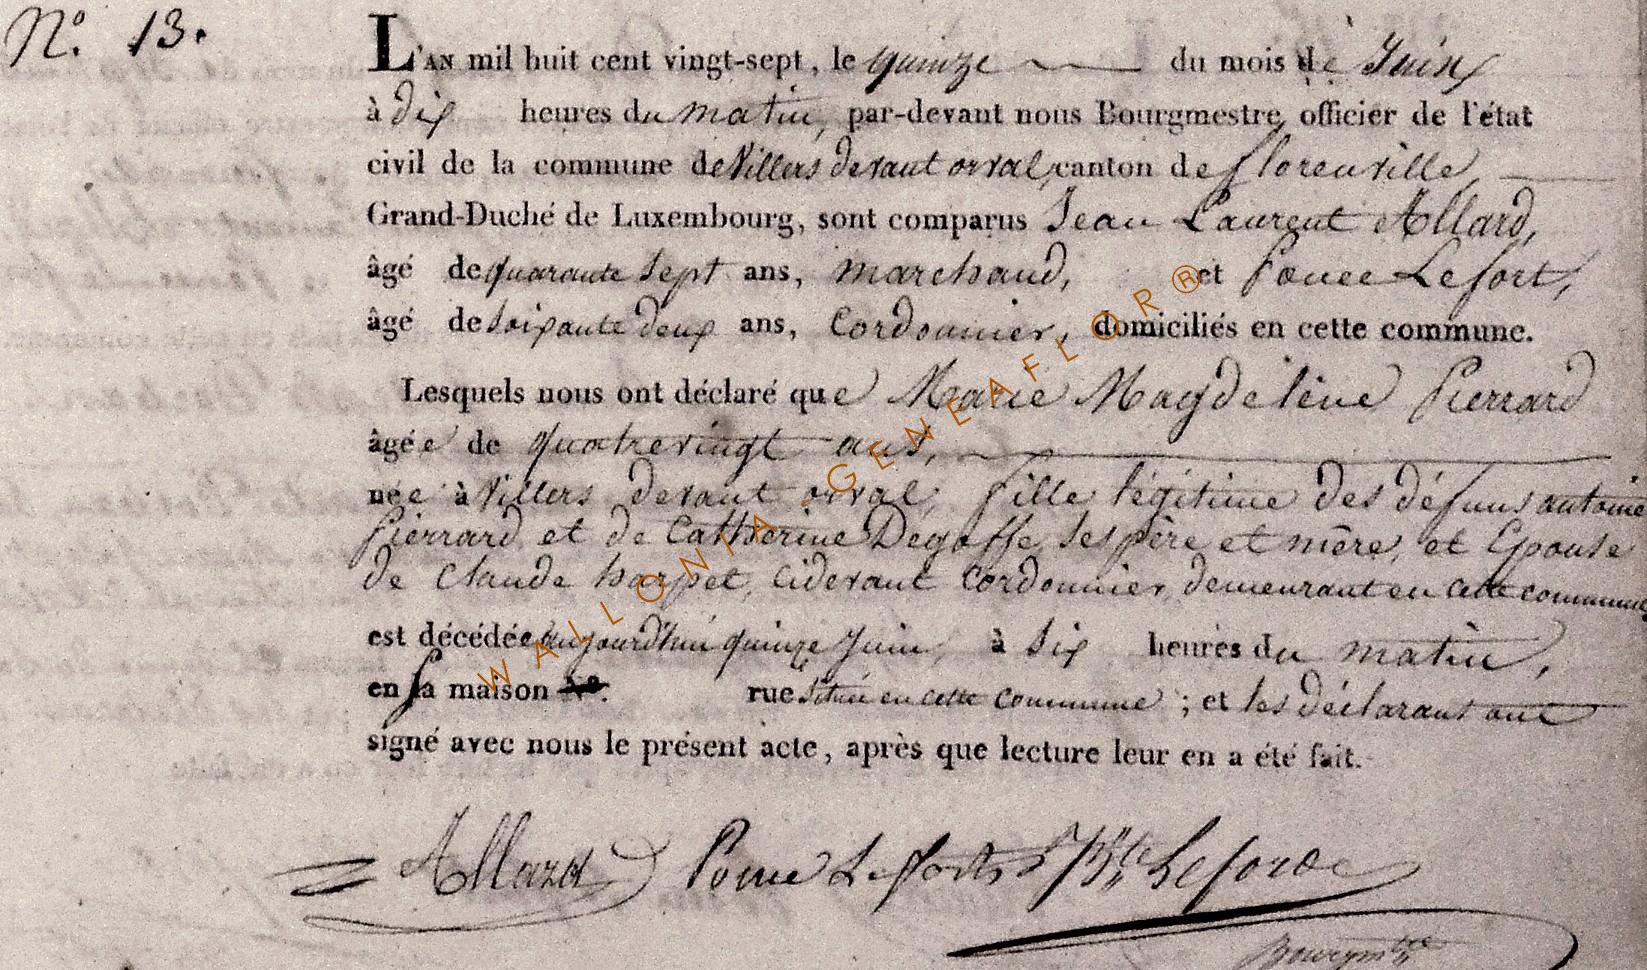 N.° 13.
L'AN mil huit cent vingt-sept, le quinze du mois de Juin
à dix heures du matin, par-devant nous Bourgmestre, officier de l'état
civil de la commune de Villers devant orval, canton de florenville,
Grand-Duché de Luxembourg, sont comparus Jean Laurent Allard,
âgé de quarante sept ans, marchand, et Ponce Lefort,
âgé de soixante deux ans, Cordonnier, domiciliés en cette commune.
Lesquels nous ont déclaré que Marie Magdeléne Pierrard
âgée de quatrevingt ans,
née à Villers devant orval, fille légitime des défuns antoine
Pierrard et de Catherine Degoffe, ses père et mère, et Epouse
de Claude harpet, cidevant Cordonnier, demeurant en cette commune,
est décédée aujourd'hui quinze Juin, à six heures du matin,
en sa maison rue située en cette commune ; et les déclarans ont
signé avec nous le présent acte, après que lecture leur en a été fait.
Allard Ponce Lefort Lefort
Bourgm.tre
WALLONIA - GENEAFLOR®